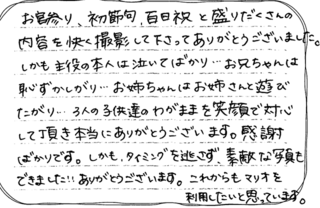 お宮参り、初節句、百日祝と盛りだくさんの
内容を快く撮影して下さってありがとうございました。
しかも主役の本人は泣いてばかり…お兄ちゃんは
恥ずかしがり…お姉ちゃんはお姉さんと遊び
たがり…3人の子供達のわがままを笑顔で対応
して頂き本当にありがとうございます。感謝
ばかりです。しかも、タイミングを逃さず、素敵な写真も
できました!!ありがとうございます。これからもマリオを
利用したいと思っています。